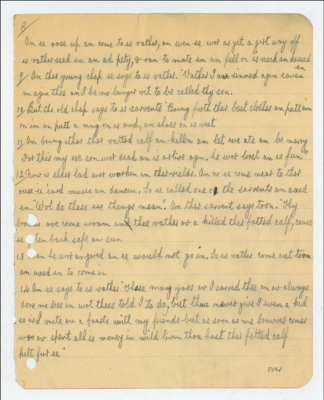 8/
An se rose up an come to is vather, an wen se wor as yet a girt way off
is vather seed en an ad pity, & ran to mate en an fell on is neck an kissed en
9/ An thic young chap se says to is vather "Vather I av zinned agen eaven
an agen thee an I be no longer vit to be called thy son.
10 But the old chap says to is sarvents "Bring forth thar best clothes an putt em
on im an putt a ring on is and, an shoes on is veet
11 An bring ither thar vatted calf an kell en an let we ate an be merry
For this my ere son wor dead an is alive agen, he wor lost an is foun"
12 Now is elder lad wor workin in thar vields. An as se come near to thar
ouse se eard music an dancin. So se called one o the sarvents an axed
en "Wot do these ere things mean". An thar sarvent says to en "Thy
brother ave come woam an thee vather av a killed thar fatted calf, cause
se ten back safe an soun
13 Then he wor angered an se would not go in, so is vather come out to en
an axed en to come in
14 An se says to is vather "These many years av I sarved thee an av always
done me bes an wot thees told I to do, but thou never give I even a kid
so as I mite av a faste with my friends but as soon as me bruvver comes
woo av spent all is money in wild livin thou hast thar fatted calf
kilt fur ee"
over